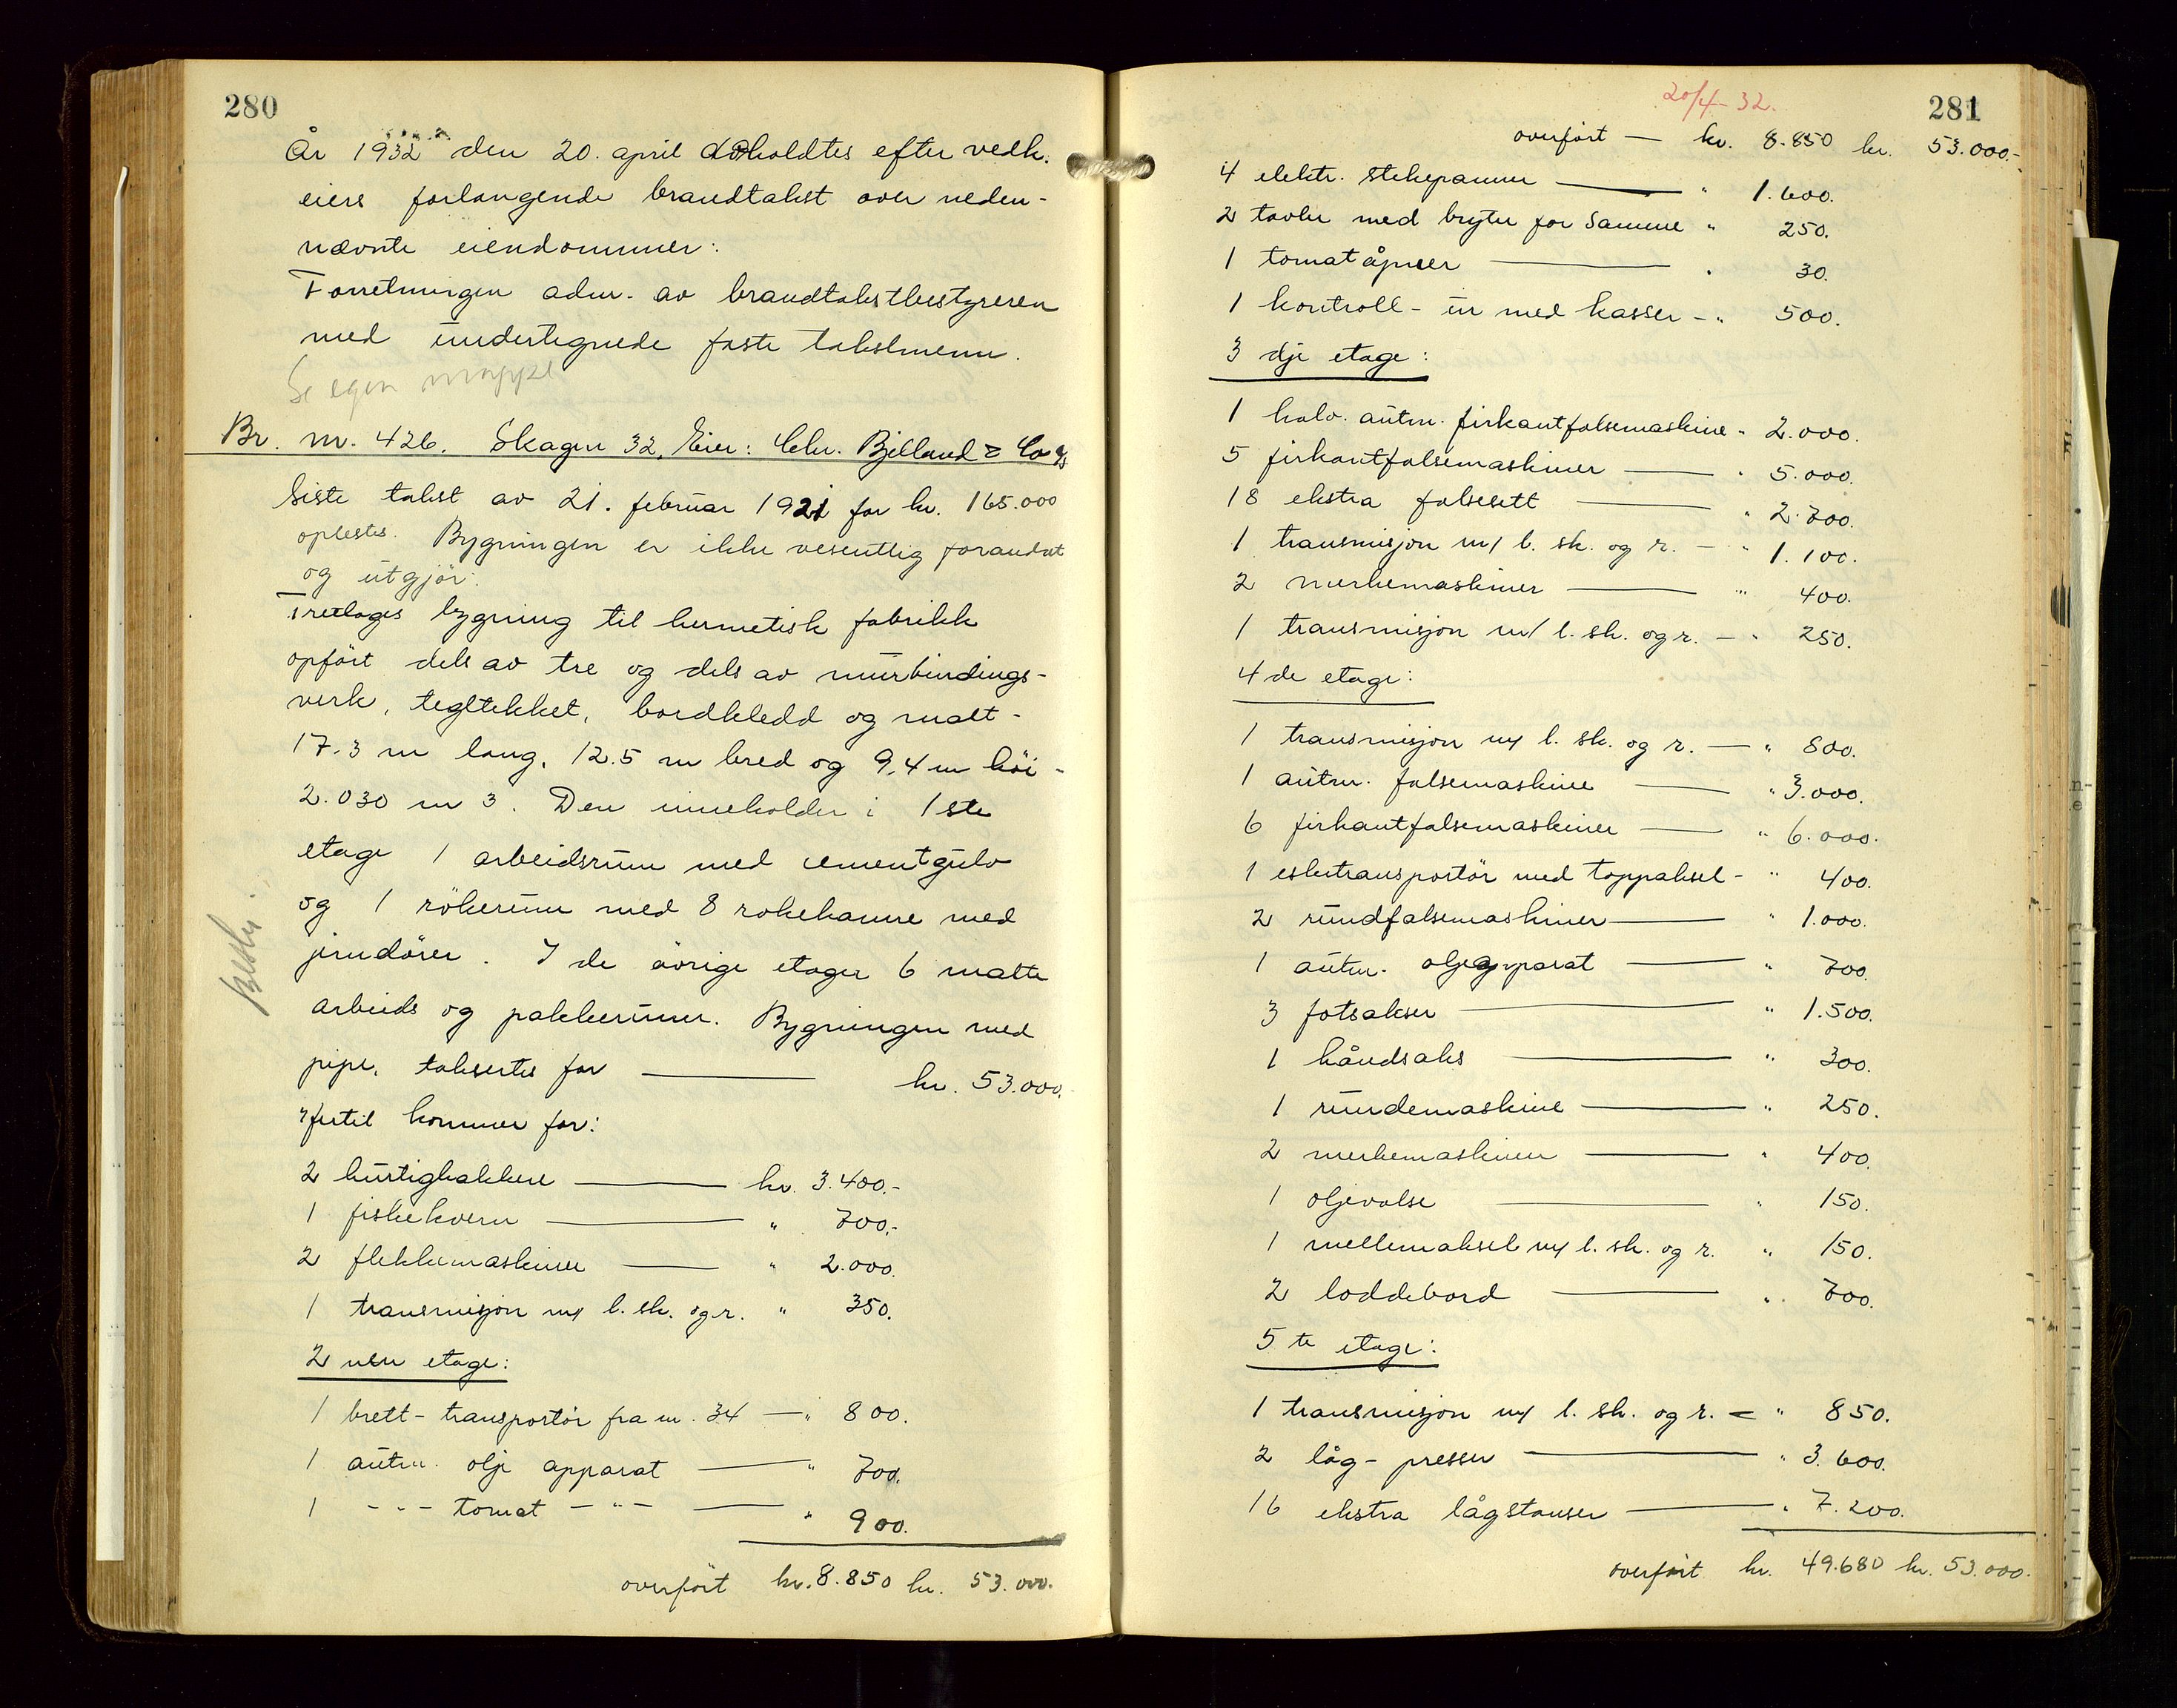 280
År 1932 den 20. april avholdtes efter vedk.
eiers forlangende brandtakst over neden-
nævnte eiendommer:
Forretningen adm. av brandtakstbestyreren
med undertegnede faste takstmenn.
Se egen mappe
Br. nr. 426. Skagen 32. Eier: Chr. Bjelland & Co A/S
Siste takst av 21. februar 1921 for kr. 165.000
oplestes. Bygningen er ikke vesentlig forandret
og utgjör:
Treetages bygning til hermetisk fabrikk
opfört dels av tre og dels av murbindings-
verk, tegltekket, bordkledd og malt-
17.3 m lang, 12.5 m bred og 9,4 m höi-
2.030 m 3. Den inneholder i 1ste
etage 1 arbeidsrum med cementgulv
og 1 rökerum med 8 rokekamre med
jerndörer. I de övrige etager 6 malte
arbeids og pakkerum. Bygningen med
pipe, takseres for — kr. 53.000.
Hertil kommer for:
2 hurtighakkere — kr. 3.400.-
1 fiskekvern — " 700.-
2 flekkemaskiner — " 2.000.
1 transmisjon m/ l. sk. og r. " 350.
2 nen etage:
1 brett-transportör fra nr. 34 — " 800.
1 autm. olje apparat — " 700.
1 - " - tomat - " - — " 900.
overfört kr. 8.850 kr. 53.000.
20/4-32.
281
overfört — kr. 8.850 kr. 53.000.-
4 elektr. stekepanner — " 1.600.
2 tavler med bryter for samme " 250.
1 tomatåpner — " 30.
1 kontroll-ur med kasser - " 500.
3 dje etage:
1 halv. autm. firkantfalsemaskine " 2.000.
5 firkantfalsemaskiner — " 5.000.
18 ekstra falsesett — " 2.700.
1 transmisjon m/ l. sk. og r. — " 1.100.
2 merkemaskiner — " 400.
1 transmisjon m/ l. sk. og r. — " 250.
4 de etage:
1 transmisjon m/ l. sk. og r. — " 800.
1 autm. falsemaskine — " 3.000.
6 firkantfalsemaskiner — " 6.000.
1 esketransportör med toppaksel - " 400.
2 rundfalsemaskiner — " 1.000.
1 autm. oljeapparat — " 700.
3 fotsakser — " 1.500.
1 håndsaks — " 300.
1 rundemaskine — " 250.
2 merkemaskiner — " 400.
1 oljevalse — " 150.
1 mellemaksel m/ l. sk. og r. " 150.
2 loddebord — " 700.
5 te etage:
1 transmisjon m/ l. sk. og r. — " 850.
2 låg-presser — " 3.600.
16 ekstra lågstanser — " 7.200.
overfört kr. 49.680 kr. 53.000.